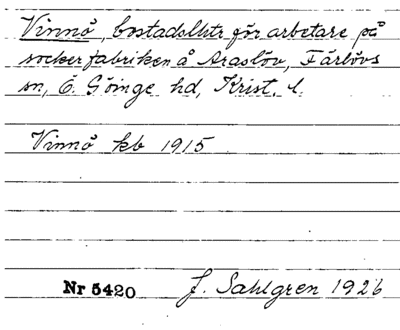 Vinnö, bostadslhtr för arbetare på
sockerfabriken å Araslöv, Färlövs
sn, Ö. Göinge hd, Krist. l.
Vinnö kb 1915
Nr 5420 J. Sahlgren 1926